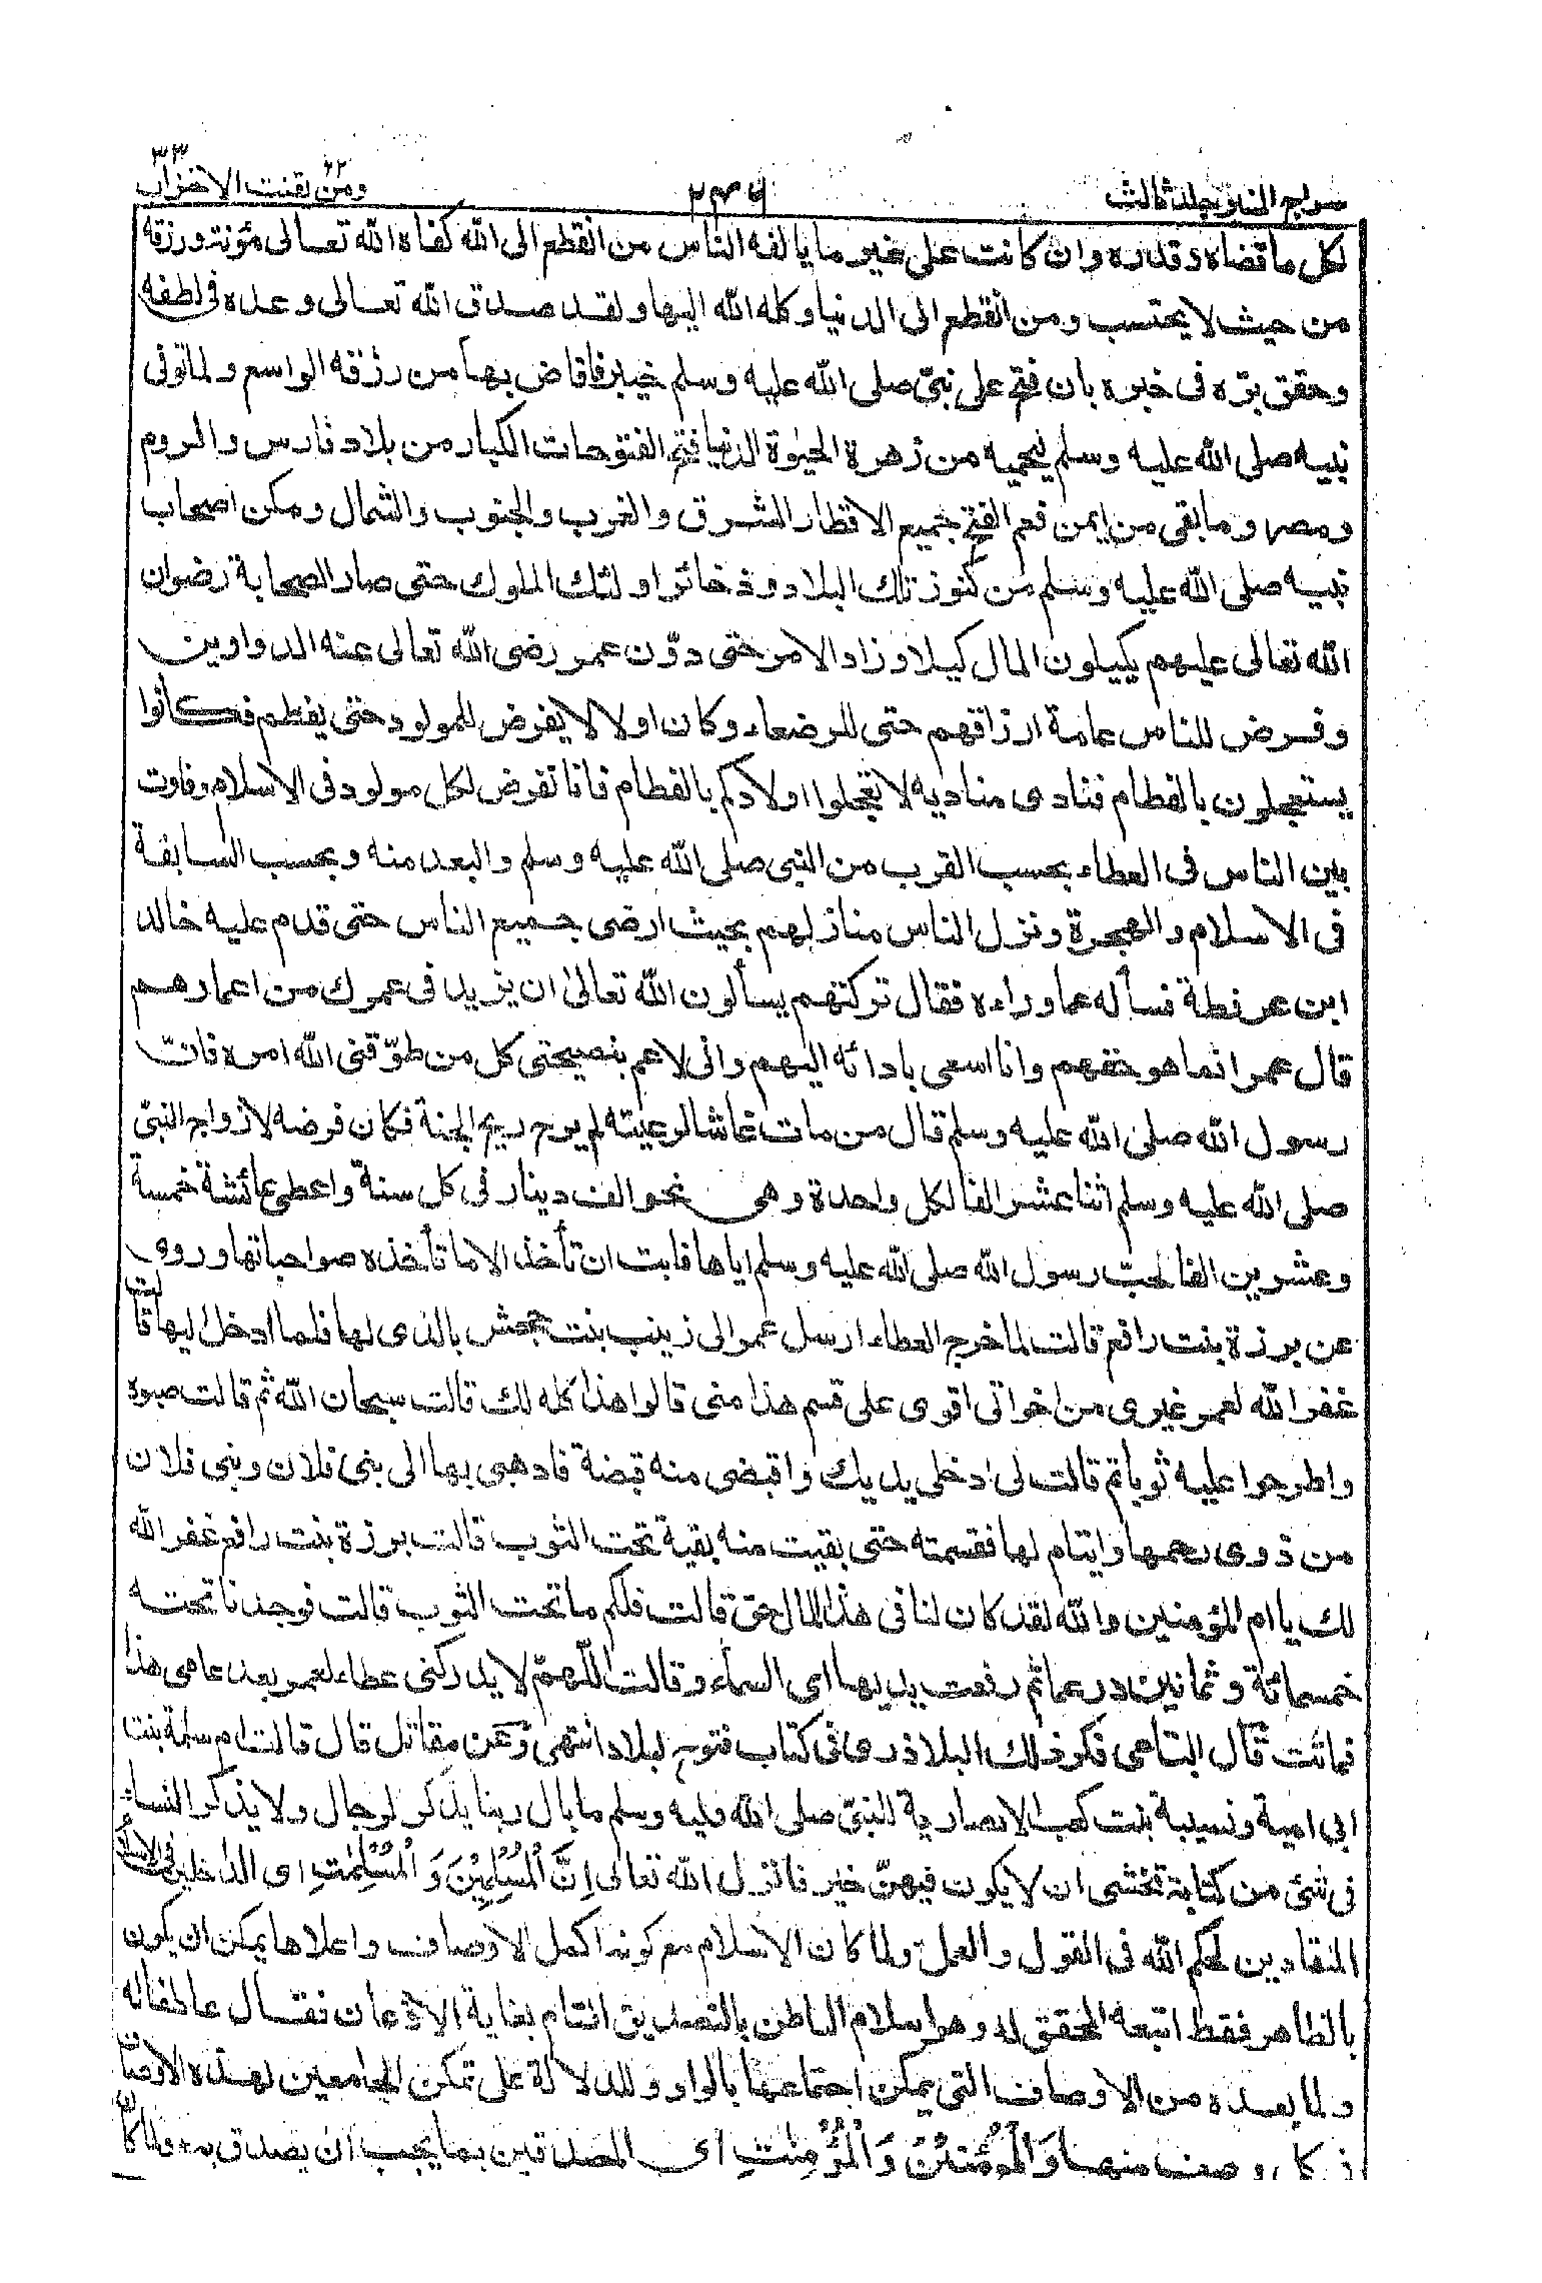 سراج المنير جلد ثالث ٢٣٦ ومن يقنت ٢٢ الاحزاب ٣٣
لكل ما قضاه وقدره وان كانت على غير ما يالفه الناس من انقطع الى الله كفاه الله تعالى مؤنته ورزقه
من حيث لا يحتسب ومن انقطع الى الدنيا وكله الله اليها ولقد صدق الله تعالى وعده فى لطفه
وحقق بره فى خبره بان فتح على نبيّ صلى الله عليه وسلم خيبر فافاض بها من رزقه الواسع ولما توفى
نبيه صلى الله عليه وسلم ليحميه من زهرة الحيوة الدنيا فتح الفتوحات الكبار من بلاد فارس والروم
ومصر وما بقى من ايمن فعم الفتح جميع الاقطار الشرق والغرب والجنوب والشمال ومكن اصحاب
نبيه صلى الله عليه وسلم من كنوز تلك البلاد وذخائر اولئك الملوك حتى صار الصحابة رضوان
الله تعالى عليهم يكيلون المال كيلا وزاد الامر حتى دوّن عمر رضى الله تعالى عنه الدواوين
وفرض للناس عامة ارزاقهم حتى للرضعاء وكان اولا لا يفرض للمولود حتى يفطم فكانوا
يستعجلون بالفطام فنادى مناديه لا تعجلوا اولادكم بالفطام فانا نفرض لكل مولود فى الاسلام وفاوت
بين الناس فى العطاء بحسب القرب من النبى صلى الله عليه وسلم والبعد منه وبحسب السابقة
فى الاسلام والهجرة ونزل الناس منازلهم بحيث ارضى جميع الناس حتى قدم عليه خالد
ابن عرفطة فسأله عما وراءه فقال تركتهم يسألون الله تعالى ان يزيد فى عمرك من اعمارهم
قال عمر انما هو حقهم وانا اسعى بادائه اليهم وانى لاعم بنصيحتى كل من طوّقنى الله امره فانّ
رسول الله صلى الله عليه وسلم قال من مات غاشا لرعيته لم يرح ريح الجنة فكان فرضه لازواج النبىّ
صلى الله عليه وسلم اثنا عشر الفا لكل واحدة وهى نحو الف دينار فى كل سنة واعطى عائشة خمسة
وعشرين الفا لحبّ رسول الله صلى الله عليه وسلم اياها فابت ان تأخذ الا ما تأخذه صواحباتها وروى
عن برزة بنت رافع قالت لما خرج العطاء ارسل عمر الى زينب بنت جحش بالذى لها فلما ادخل اليها قالت
غفر الله لعمر غيرى من اخواتى اقوى على قسم هذا منى قالوا هذا كله لك قالت سبحان الله ثم قالت صبوه
واطرحوا عليه ثوبا ثم قالت لى ادخلى يديك واقبضى منه قبضة فادهبى بها الى بنى فلان وبنى فلان
من ذوى رحمها وايتام لها فقسمته حتى بقيت منه بقية تحت الثوب قالت برزة بنت رافع غفر الله
لك يا ام المؤمنين والله لقد كان لنا فى هذا المال حق قالت فلكم ما تحت الثوب قالت فوجدنا تحته
خمسمائة وثمانين درهما ثم رفعت يديها الى السماء وقالت اللّهمّ لا يدركنى عطاء لعمر بعد عامى هذا
فماتت قال البقاعى فكر ذلك البلاذرى فى كتاب فتوح البلاد انتهى وعن مقاتل قال قالت ام سلمة بنت
ابى امية ونسيبة بنت كعب الانصارية للنبىّ صلى الله عليه وسلم ما بال ربنا يذكر لرجال ولا يذكر النساء
فى شئ من كتابه نخشى ان لا يكون فيهنّ خير فانزل الله تعالى اِنَّ الْمُسْلِمِيْنَ وَ الْمُسْلِمٰتِ اى الداخلين فى الاسلام
المنقادين لحكم الله فى القول والعمل ولما كان الاسلام مع كونه اكمل الاوصاف واعلاها يمكن ان يكون
بالظاهر فقط اتبعه المحقق له وهو اسلام الباطن بالتصديق التام بغاية الاذعان فقال عاطفا له
ولما بعده من الاوصاف التى يمكن اجتماعها بالواو وللدلالة على تمكن الجامعين لهذه الاوصاف
من كل وصف منها وَالْمُؤْمِنِيْنَ وَ الْمُؤْمِنٰتِ اى المصدقين بما يجب ان يصدق به ولما كان